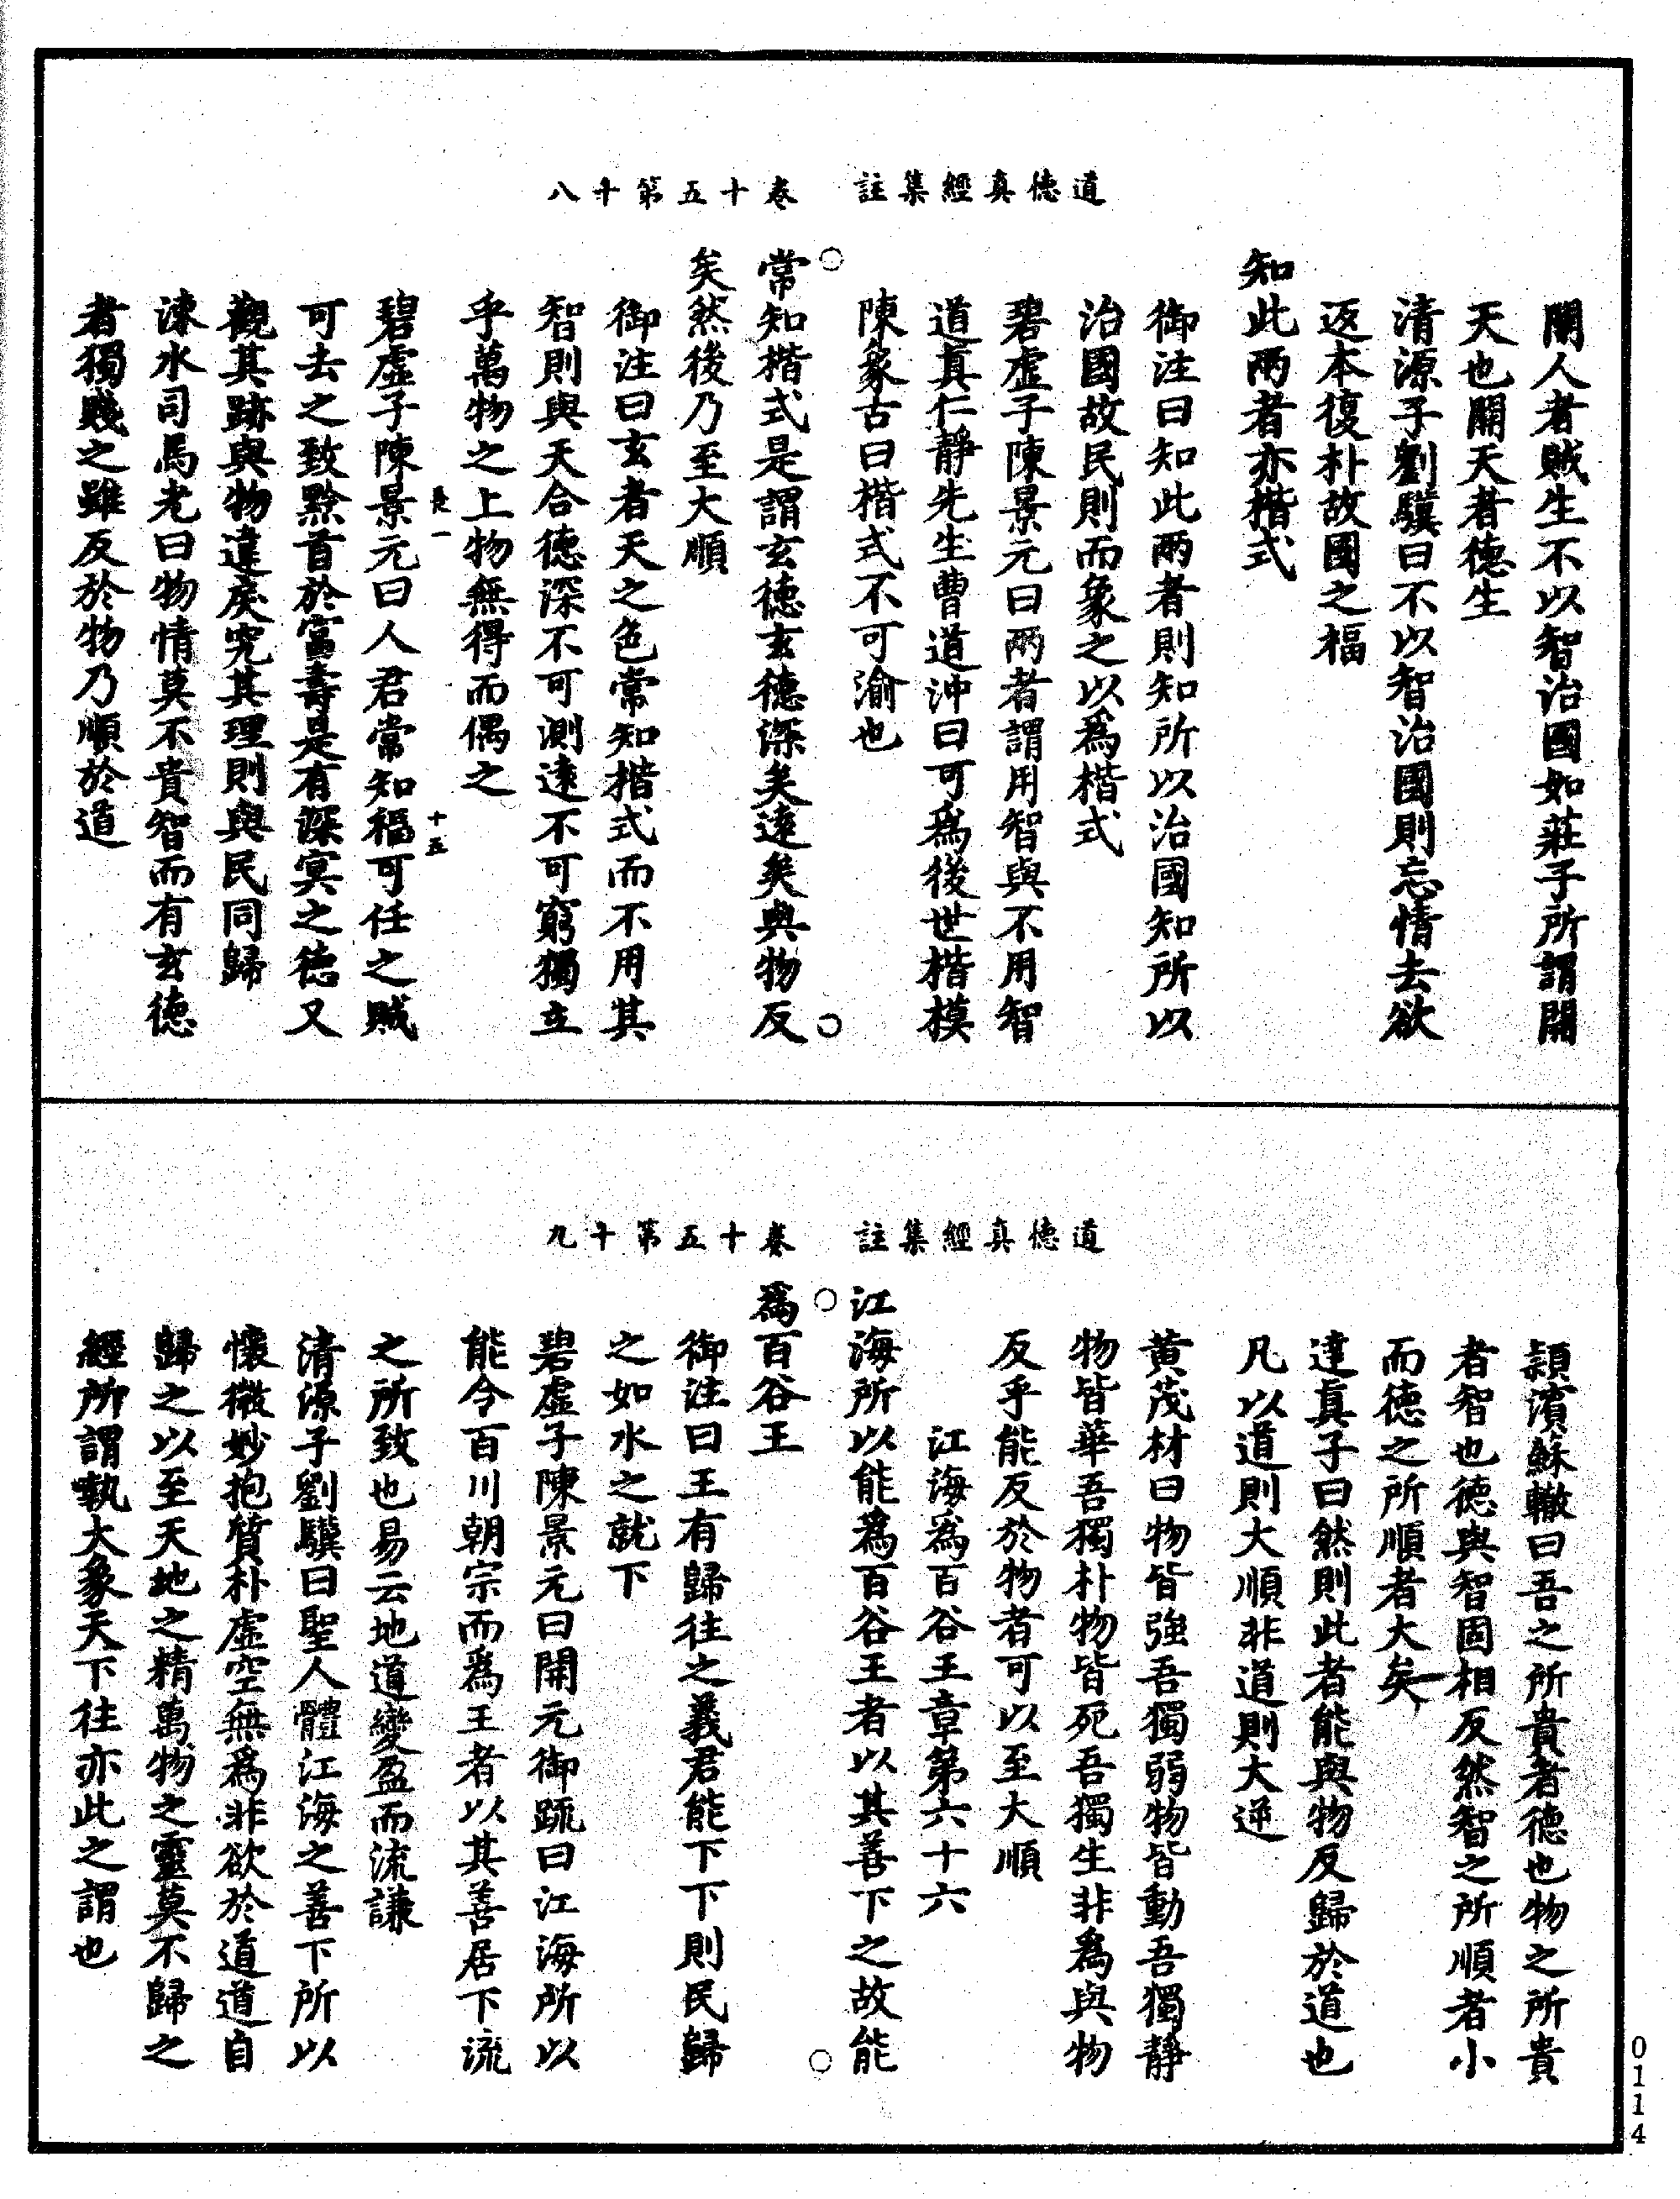 道德真經集註　卷十五第十八
開人者賊生不以智治國如莊子所謂開
天也開天者德生
清源子劉驥曰不以智治國則忘情去欲
返本復朴故國之福
知此兩者亦楷式
御注曰知此兩者則知所以治國知所以
治國故民則而象之以爲楷式
碧虛子陳景元曰兩者謂用智與不用智
道真仁靜先生曹道沖曰可爲後世楷模
陳象古曰楷式不可渝也
常知楷式是謂玄德玄德深矣遠矣與物反
矣然後乃至大順
御注曰玄者天之色常知楷式而不用其
智則與天合德深不可測遠不可窮獨立
乎萬物之上物無得而偶之
長一　十五
碧虛子陳景元曰人君常知福可任之賊
可去之致黔首於富壽是有深冥之德又
觀其跡與物違戾究其理則與民同歸
涑水司馬光曰物情莫不貴智而有玄德
者獨賤之雖反於物乃順於道
道德真經集註　卷十五第十九
潁濱蘇轍曰吾之所貴者德也物之所貴
者智也德與智固相反然智之所順者小
而德之所順者大矣
達真子曰然則此者能與物反歸於道也
凡以道則大順非道則大逆
黃茂材曰物皆強吾獨弱物皆動吾獨靜
物皆華吾獨朴物皆死吾獨生非爲與物
反乎能反於物者可以至大順
江海爲百谷王章第六十六
江海所以能爲百谷王者以其善下之故能
爲百谷王
御注曰王有歸往之義君能下下則民歸
之如水之就下
碧虛子陳景元曰開元御疏曰江海所以
能令百川朝宗而爲王者以其善居下流
之所致也易云地道變盈而流謙
清源子劉驥曰聖人體江海之善下所以
懷微妙抱質朴虛空無爲非欲於道道自
歸之以至天地之精萬物之靈莫不歸之
經所謂執大象天下往亦此之謂也
0114